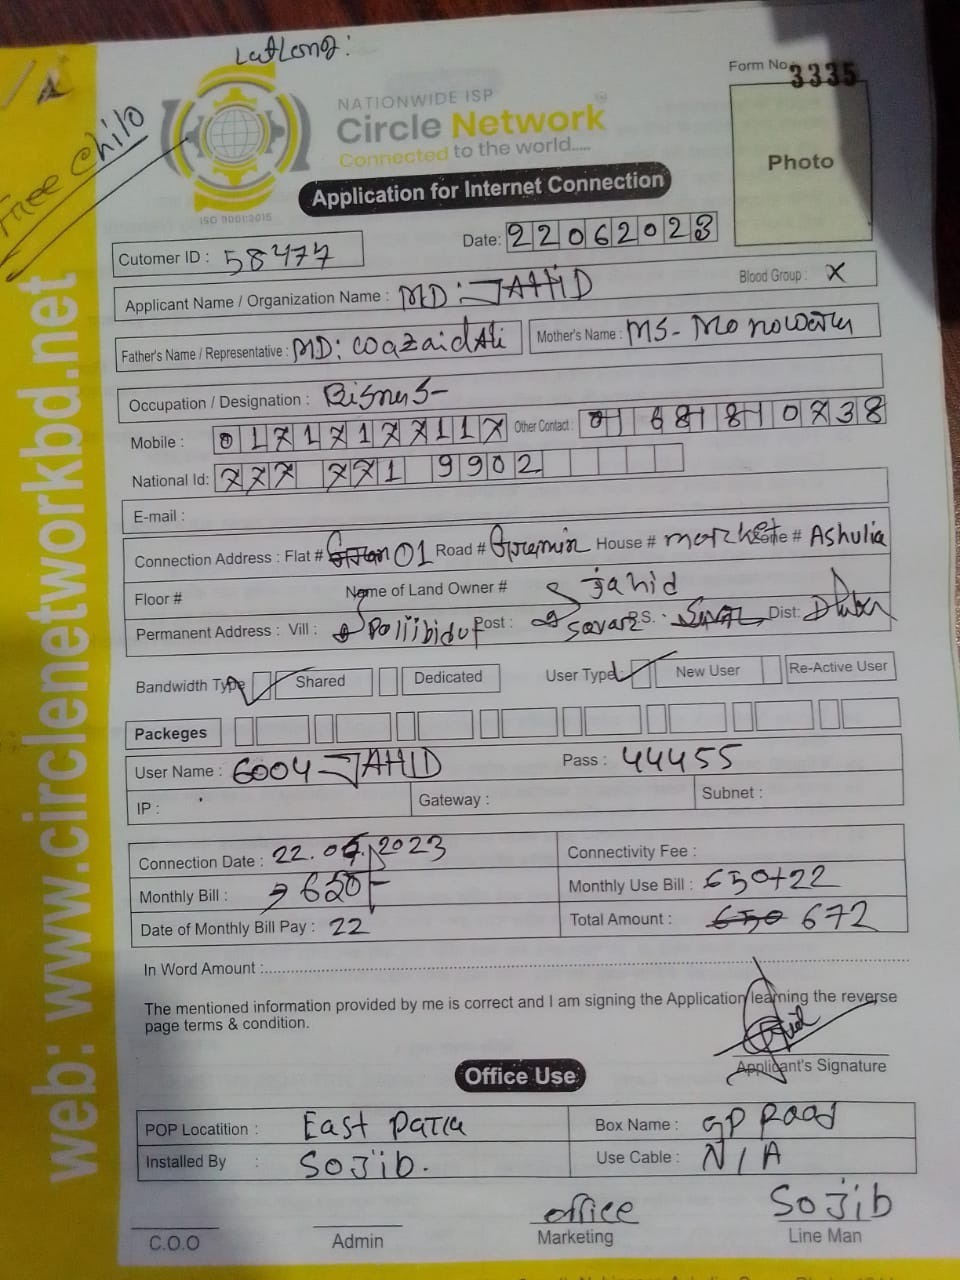 LatLong:
Form No. 3335
Free Chilo
NATIONWIDE ISP
Circle Network
Connected to the world.....
ISO 9001:2015
Photo
Application for Internet Connection
Cutomer ID : 58477
Date: 22062023
Applicant Name / Organization Name : MD: JAHID
Blood Group : X
Father's Name / Representative : MD: Ali
Mother's Name : MS- Monowara
Occupation / Designation :
Mobile : 01717177117
Other Contact : 01681810738
National Id: 777 771 9902
E-mail :
Connection Address : Flat # 01 Road # House # market # Ashulia
Floor #
Name of Land Owner # Jahid
Permanent Address : Vill : Post : Savar P.S. Dist: Dhaka
Bandwidth Type Shared Dedicated
User Type New User Re-Active User
Packeges
User Name : 6004 JAHID
Pass : 44455
IP : Gateway : Subnet :
Connection Date : 22. 2023
Connectivity Fee :
Monthly Bill :
Monthly Use Bill : 650+22
Date of Monthly Bill Pay : 22
Total Amount : 650 672
In Word Amount :
The mentioned information provided by me is correct and I am signing the Application learning the reverse
page terms & condition.
Applicant's Signature
Office Use
POP Locatition : East
Box Name : GP Road
Installed By : Sojib.
Use Cable : N/A
C.O.O
Admin
office
Marketing
Sojib
Line Man
web: www.circlenetworkbd.net